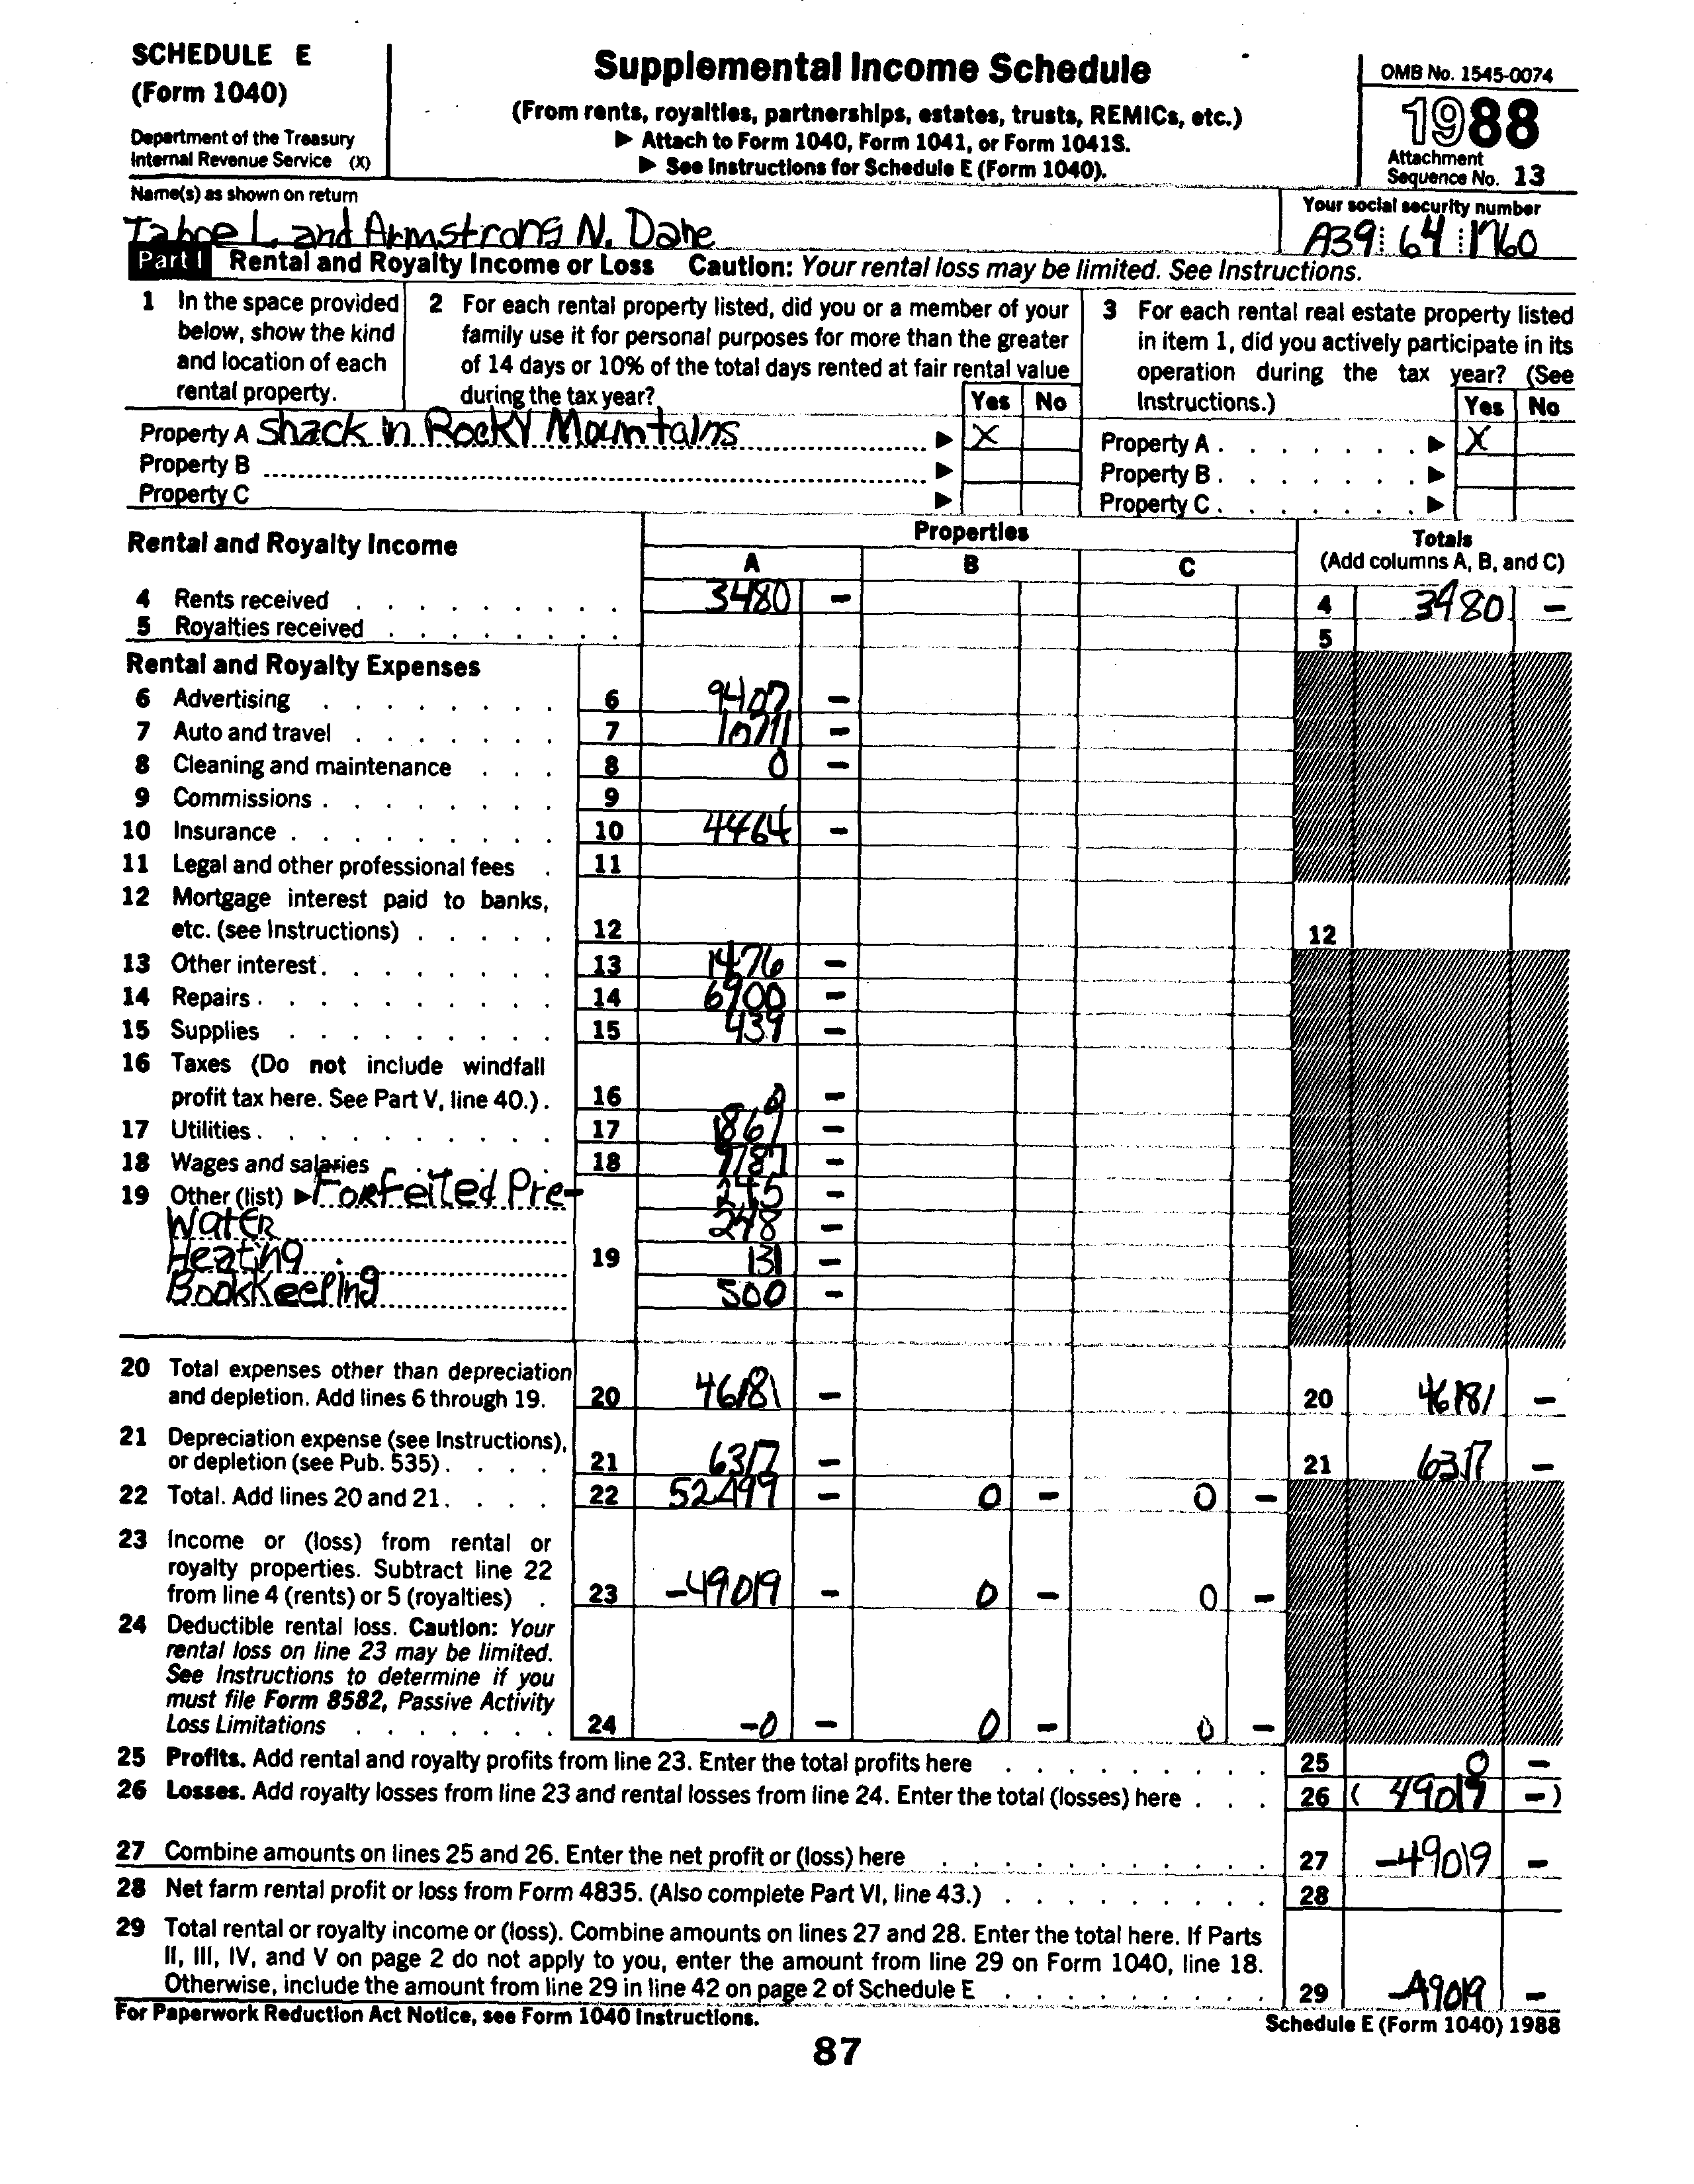 SCHEDULE E
(Form 1040)
Department of the Treasury
Internal Revenue Service (X)
Supplemental Income Schedule
(From rents, royalties, partnerships, estates, trusts, REMICs, etc.)
▶ Attach to Form 1040, Form 1041, or Form 1041S.
▶ See Instructions for Schedule E (Form 1040).
OMB No. 1545-0074
1988
Attachment
Sequence No. 13
Name(s) as shown on return
Tahoe L. and Armstrong N. Dane
Your social security number
A39 64 1760
Part I Rental and Royalty Income or Loss Caution: Your rental loss may be limited. See Instructions.
1 In the space provided
below, show the kind
and location of each
rental property.
2 For each rental property listed, did you or a member of your
family use it for personal purposes for more than the greater
of 14 days or 10% of the total days rented at fair rental value
during the tax year? Yes No
3 For each rental real estate property listed
in item 1, did you actively participate in its
operation during the tax year? (See
Instructions.) Yes No
Property A Shack in Rocky Mountains ▶ X Property A ▶ X
Property B ▶ Property B ▶
Property C ▶ Property C ▶
Rental and Royalty Income
Properties
A B C
Totals
(Add columns A, B, and C)
4 Rents received 3480 - 4 3480 -
5 Royalties received 5
Rental and Royalty Expenses
6 Advertising 6 9407 -
7 Auto and travel 7 10711 -
8 Cleaning and maintenance 8 0 -
9 Commissions 9
10 Insurance 10 4464 -
11 Legal and other professional fees 11
12 Mortgage interest paid to banks,
etc. (see Instructions) 12 12
13 Other interest 13 1476 -
14 Repairs 14 6900 -
15 Supplies 15 439 -
16 Taxes (Do not include windfall
profit tax here. See Part V, line 40.) 16 0 -
17 Utilities 17 1869 -
18 Wages and salaries 18 -
19 Other (list) ▶ Forfeited Pre- 245 -
Water 248 -
Heating 19 131 -
Bookkeeping 500 -
20 Total expenses other than depreciation
and depletion. Add lines 6 through 19. 20 46181 - 20 46181 -
21 Depreciation expense (see Instructions),
or depletion (see Pub. 535) 21 6317 - 21 6317 -
22 Total. Add lines 20 and 21. 22 52499 - 0 - 0 -
23 Income or (loss) from rental or
royalty properties. Subtract line 22
from line 4 (rents) or 5 (royalties) 23 -49019 - 0 - 0 -
24 Deductible rental loss. Caution: Your
rental loss on line 23 may be limited.
See Instructions to determine if you
must file Form 8582, Passive Activity
Loss Limitations 24 -0 - 0 - 0 -
25 Profits. Add rental and royalty profits from line 23. Enter the total profits here 25 0 -
26 Losses. Add royalty losses from line 23 and rental losses from line 24. Enter the total (losses) here 26 ( 49019 - )
27 Combine amounts on lines 25 and 26. Enter the net profit or (loss) here 27 -49019 -
28 Net farm rental profit or loss from Form 4835. (Also complete Part VI, line 43.) 28
29 Total rental or royalty income or (loss). Combine amounts on lines 27 and 28. Enter the total here. If Parts
II, III, IV, and V on page 2 do not apply to you, enter the amount from line 29 on Form 1040, line 18.
Otherwise, include the amount from line 29 in line 42 on page 2 of Schedule E 29 -49019 -
For Paperwork Reduction Act Notice, see Form 1040 Instructions.
Schedule E (Form 1040) 1988
87